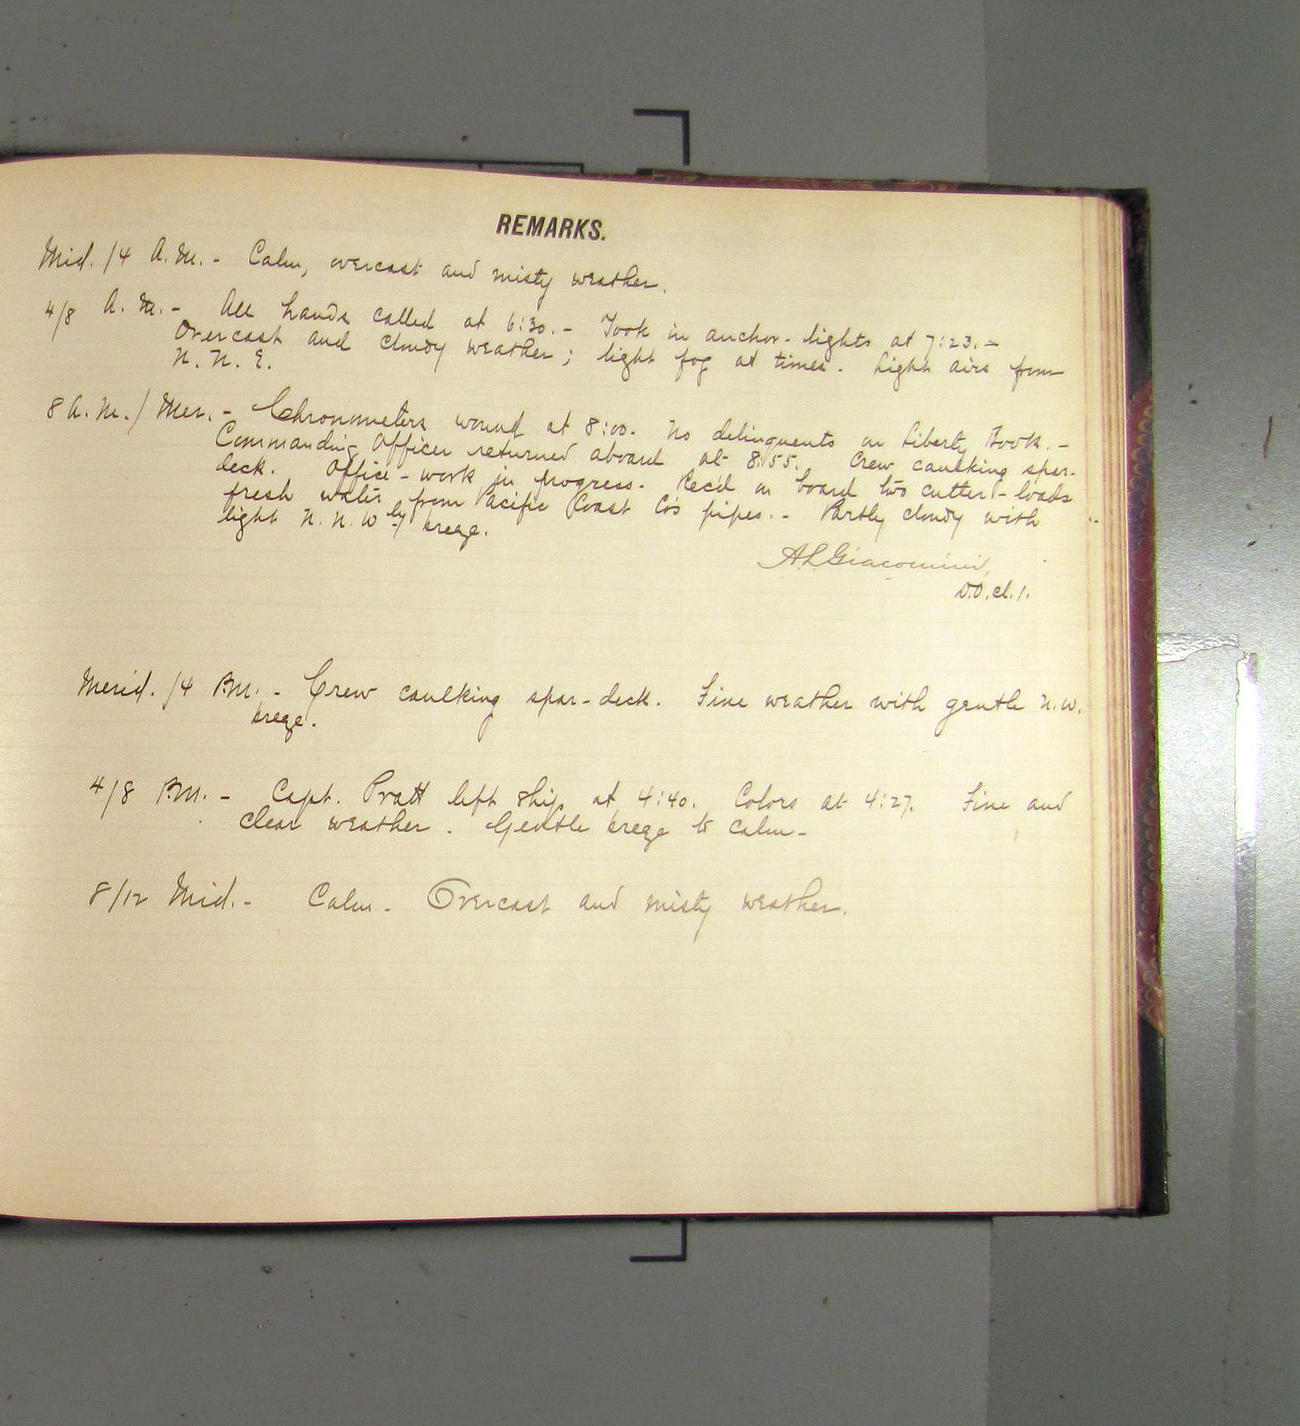 REMARKS.
Mid./4 A.M. - Calm, overcast and misty weather.
4/8 A.M. - All hands called at 6:30. - Took in anchor-lights at 7:23. -
Overcast and cloudy weather; light fog at times. Light airs from
N.N.E.
8 A.M./Mer. - Chronometers wound at 8:00. No delinquents on Liberty Book. -
Commanding Officer returned aboard at 8:55. Crew caulking spar-
deck. Office-work in progress. Rec'd on board two cutter-loads
fresh water from Pacific Coast Co's pipes. - Partly cloudy with
light N.N.W'ly breeze.
A L Giacomini,
D.O.cl.1.
Merid./4 P.M. - Crew caulking spar-deck. Fine weather with gentle N.W.
breeze.
4/8 P.M. - Capt. Pratt left ship at 4:40. Colors at 4:27. Fine and
clear weather. Gentle breeze to calm -
8/12 Mid. - Calm - Overcast and misty weather.